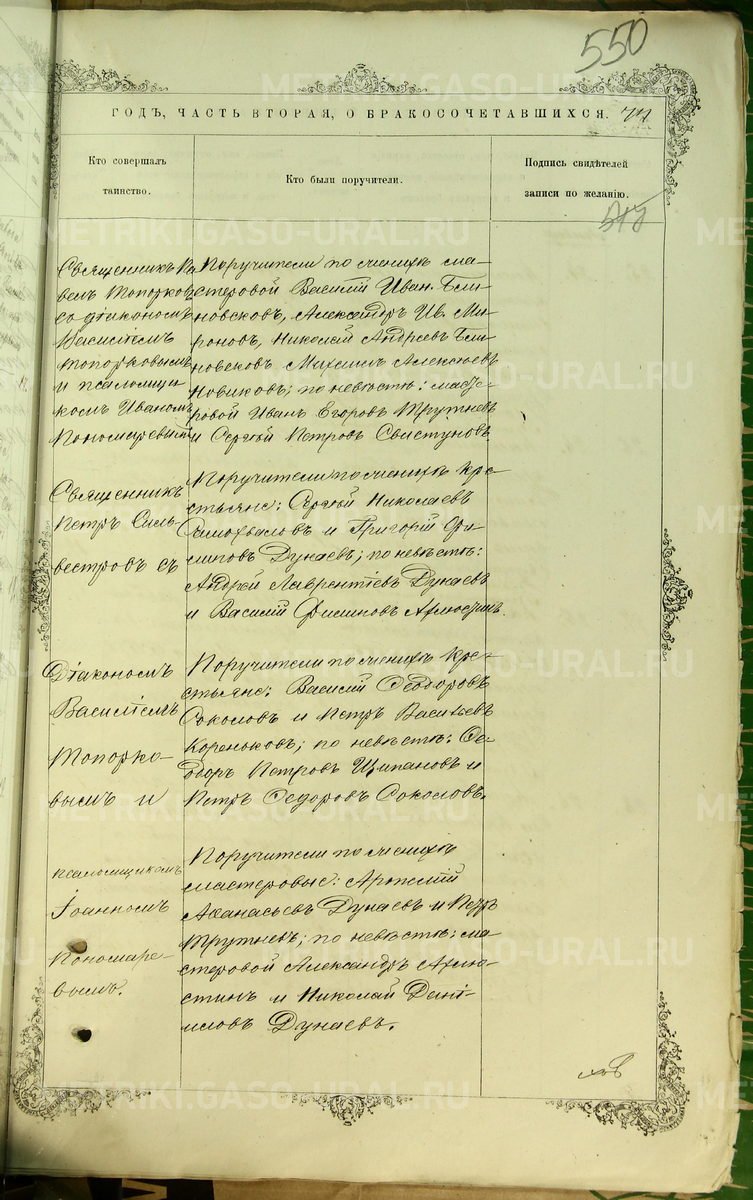 550
ГОДЪ, ЧАСТЬ ВТОРАЯ, О БРАКОСОЧЕТАВШИХСЯ.
Кто совершалъ
таинство.
Кто были поручители.
Подпись свидѣтелей
записи по желанію.
Священникъ Па
велъ Топорковъ
со діакономъ
Василіемъ
Топорковымъ
и псаломщи
комъ Иваномъ
Пономаревымъ
Поручители по женихѣ ма-
стеровой Василій Иван. Бли-
новсковъ, Александръ Ив. Ми-
роновъ, Николай Андреевъ Бли-
новсковъ Михаилъ Алексѣевъ
Новиковъ; по невѣстѣ: масте-
ровой Иванъ Егоровъ Трутневъ
и Сергѣй Петровъ Свистуновъ
Священникъ
Петръ Силь-
вестровъ съ
Поручители по женихѣ кре-
стьяне: Сергѣй Николаевъ
Самохваловъ и Григорій Фи-
липовъ Дунаевъ; по невѣстѣ:
Андрей Лаврентіевъ Дунаевъ
и Василій
Діакономъ
Василіемъ
Топорко-
вымъ и
Поручители по женихѣ кре-
стьяне: Василій Ѳедоровъ
Соколовъ и Петръ Васильевъ
Кореньковъ; по невѣстѣ: Ѳе-
доръ Петровъ Щипановъ и
Петръ Ѳедоровъ Соколовъ.
псаломщикомъ
Іоанномъ
Пономаре-
вымъ.
Поручители по женихѣ
мастеровые: Артемій
Аѳанасьевъ Дунаевъ и Петръ
Трутневъ; по невѣстѣ: ма-
стеровой Александръ Арлю-
стинъ и Николай Дані-
иловъ Дунаевъ.
METRIKI.GASO-URAL.RU